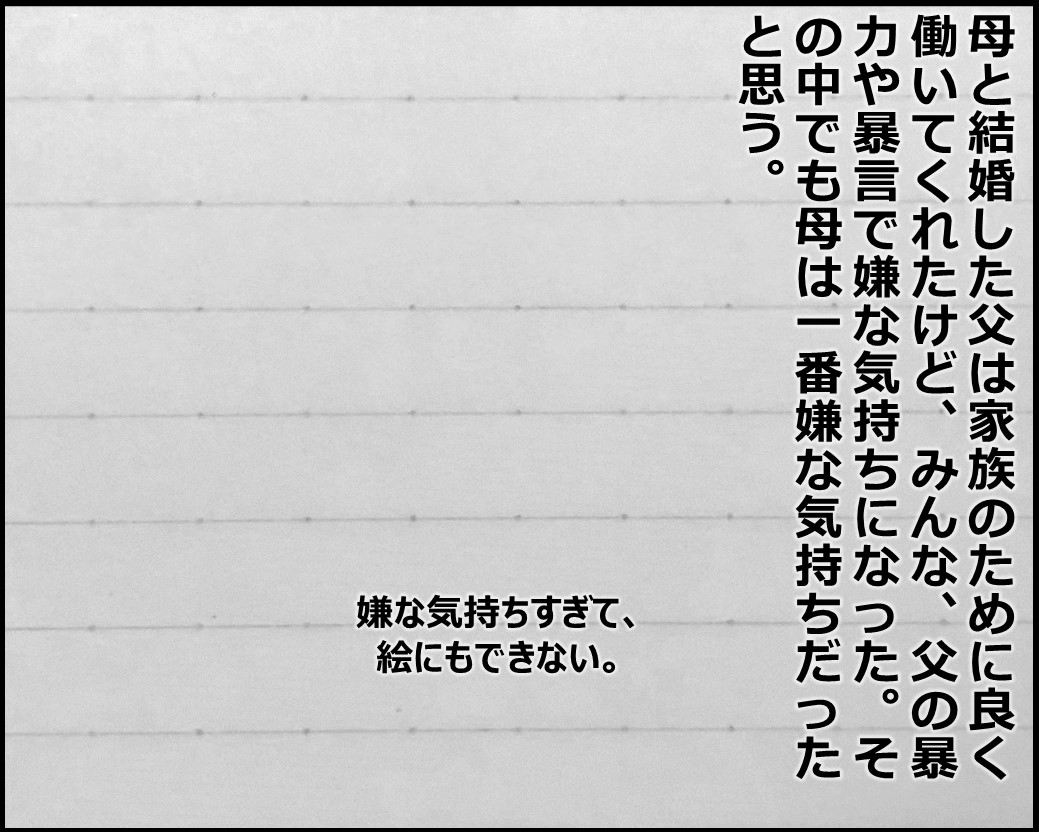 母と結婚した父は家族のために良く
働いてくれたけど、みんな、父の暴
力や暴言で嫌な気持ちになった。そ
の中でも母は一番嫌な気持ちだった
と思う。
嫌な気持ちすぎて、
絵にもできない。